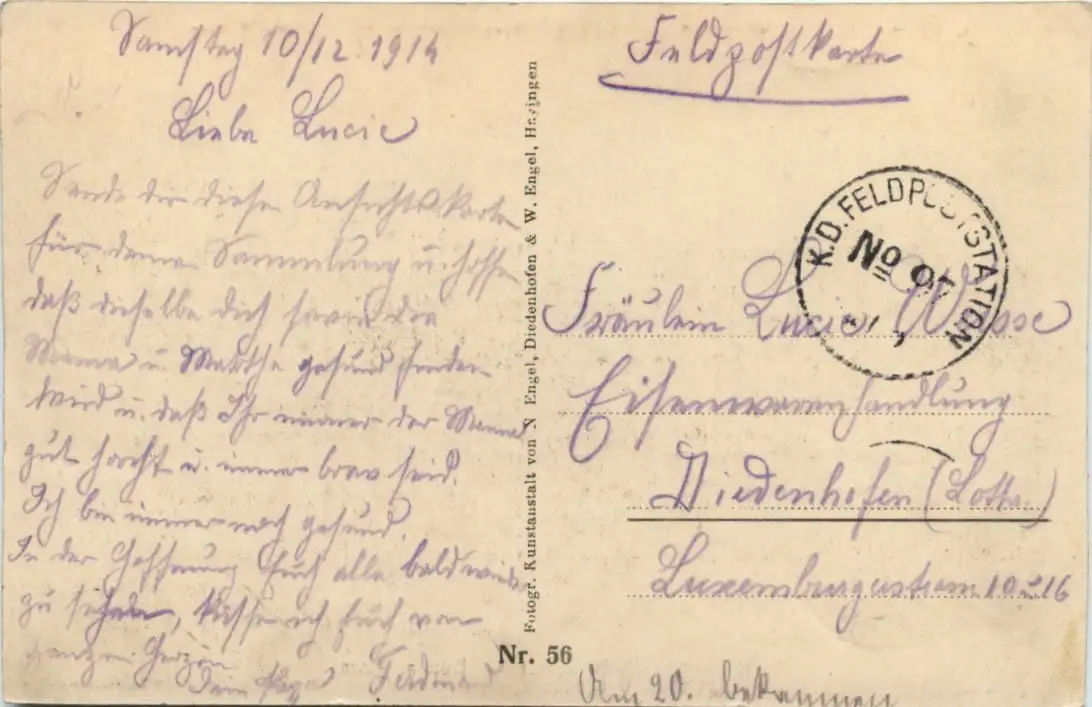 Samstag 10/12. 1914
Liebe Lucie
Sende dir diese Ansichtskarte
für deine Sammlung u. hoffe
daß dieselbe dich sowie die
Mama u Marthe gesund finden
wird u. daß Ihr immer der Mama
gut horcht u. immer brav seid.
Ich bin immer noch gesund.
In der Hoffnung Euch alle bald wieder
zu sehen, küsse ich Euch von
ganzem Herzen
Dein Papa Ferdinand
Fotogr. Kunstanstalt von N Engel, Diedenhofen & W. Engel, Hayingen
Nr. 56
Feldpostkarte
K.D. FELDPOSTSTATION
No 97
Fräulein Lucie
Eisenwarenhandlung
Diedenhofen (Lothr.)
Luxemburgerstrasse 10 u 16
Am 20. bekommen